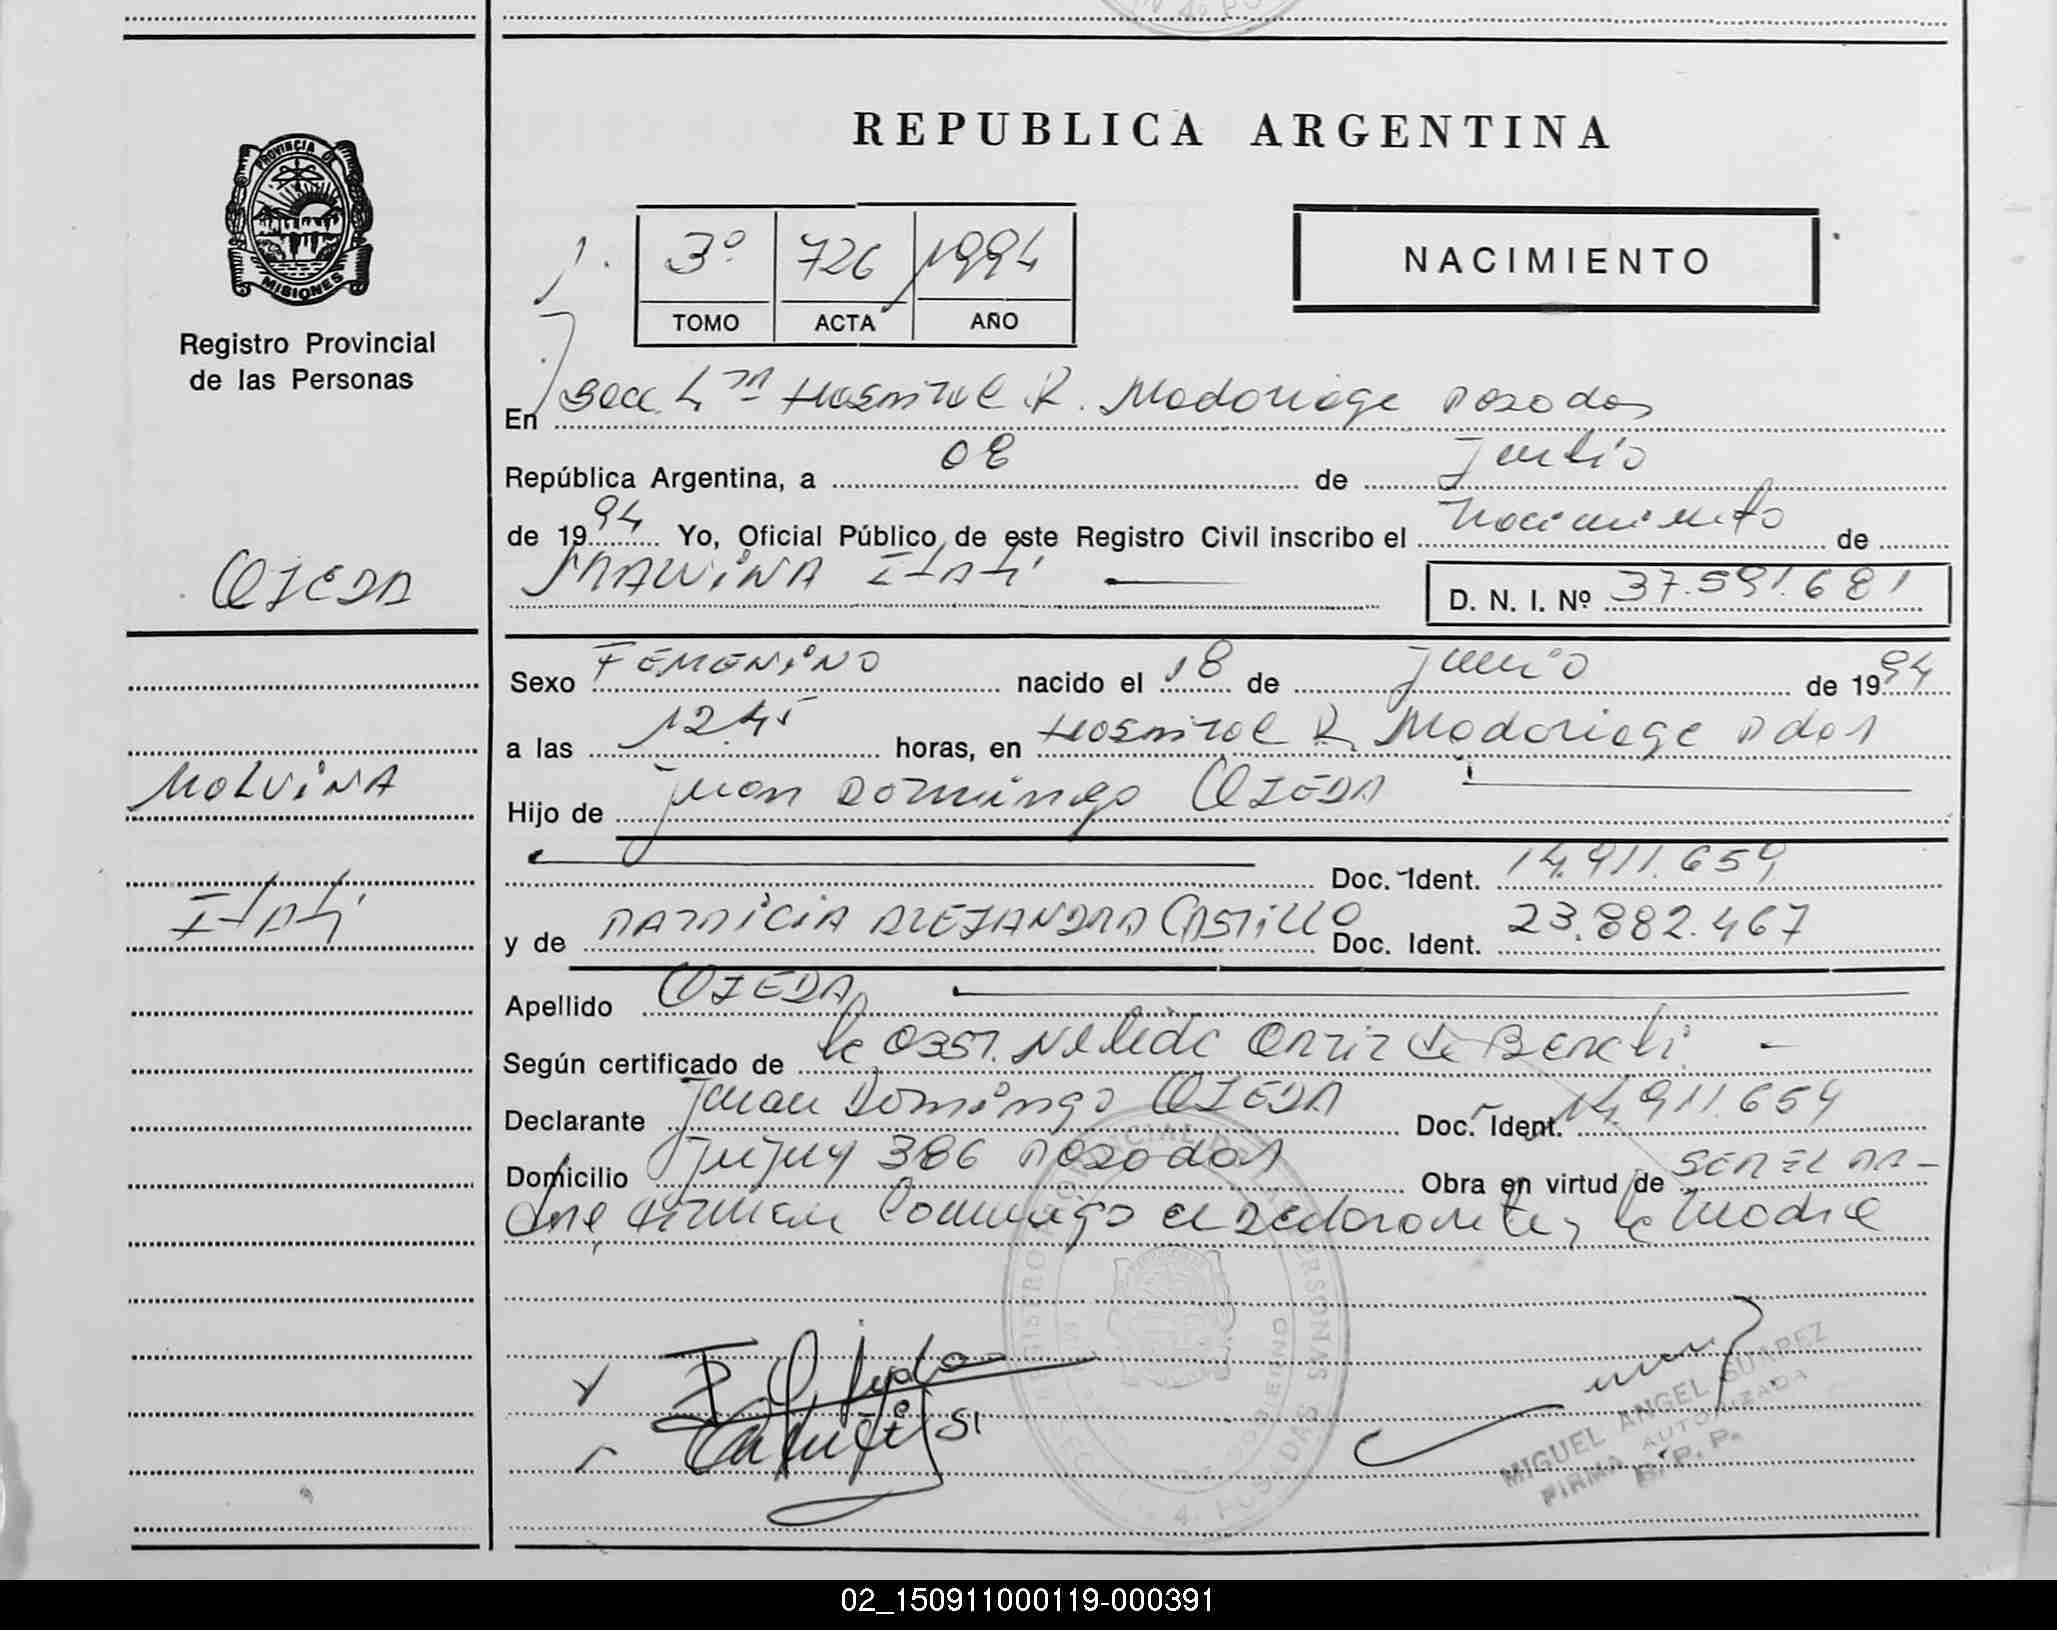 PROVINCIA DE
MISIONES
Registro Provincial
de las Personas
OJEDA
MALVINA
Itatí
REPUBLICA ARGENTINA
3º 726 1994
TOMO ACTA AÑO
NACIMIENTO
En Secc. 4ta Hospital R. Madariaga Posadas
República Argentina, a 08 de Julio
de 1994 Yo, Oficial Público de este Registro Civil inscribo el Nacimiento de
MALVINA Itatí
D. N. I. Nº 37.591.681
Sexo FEMENINO nacido el 18 de Junio de 1994
a las 12 45 horas, en Hospital R. Madariaga Pdas
Hijo de Juan Domingo OJEDA
Doc. Ident. 14.911.659
y de PATRICIA ALEJANDRA CASTILLO Doc. Ident. 23.882.467
Apellido OJEDA
Según certificado de la Obst. Nelida Ortiz de
Declarante Juan Domingo OJEDA Doc. Ident. 14.911.659
Domicilio Jujuy 386 Posadas Obra en virtud de SER EL PA-
dre, firman conmigo el declarante y la Madre
MIGUEL ANGEL SUAREZ
FIRMA AUTORIZADA
R. P. P.
02_150911000119-000391